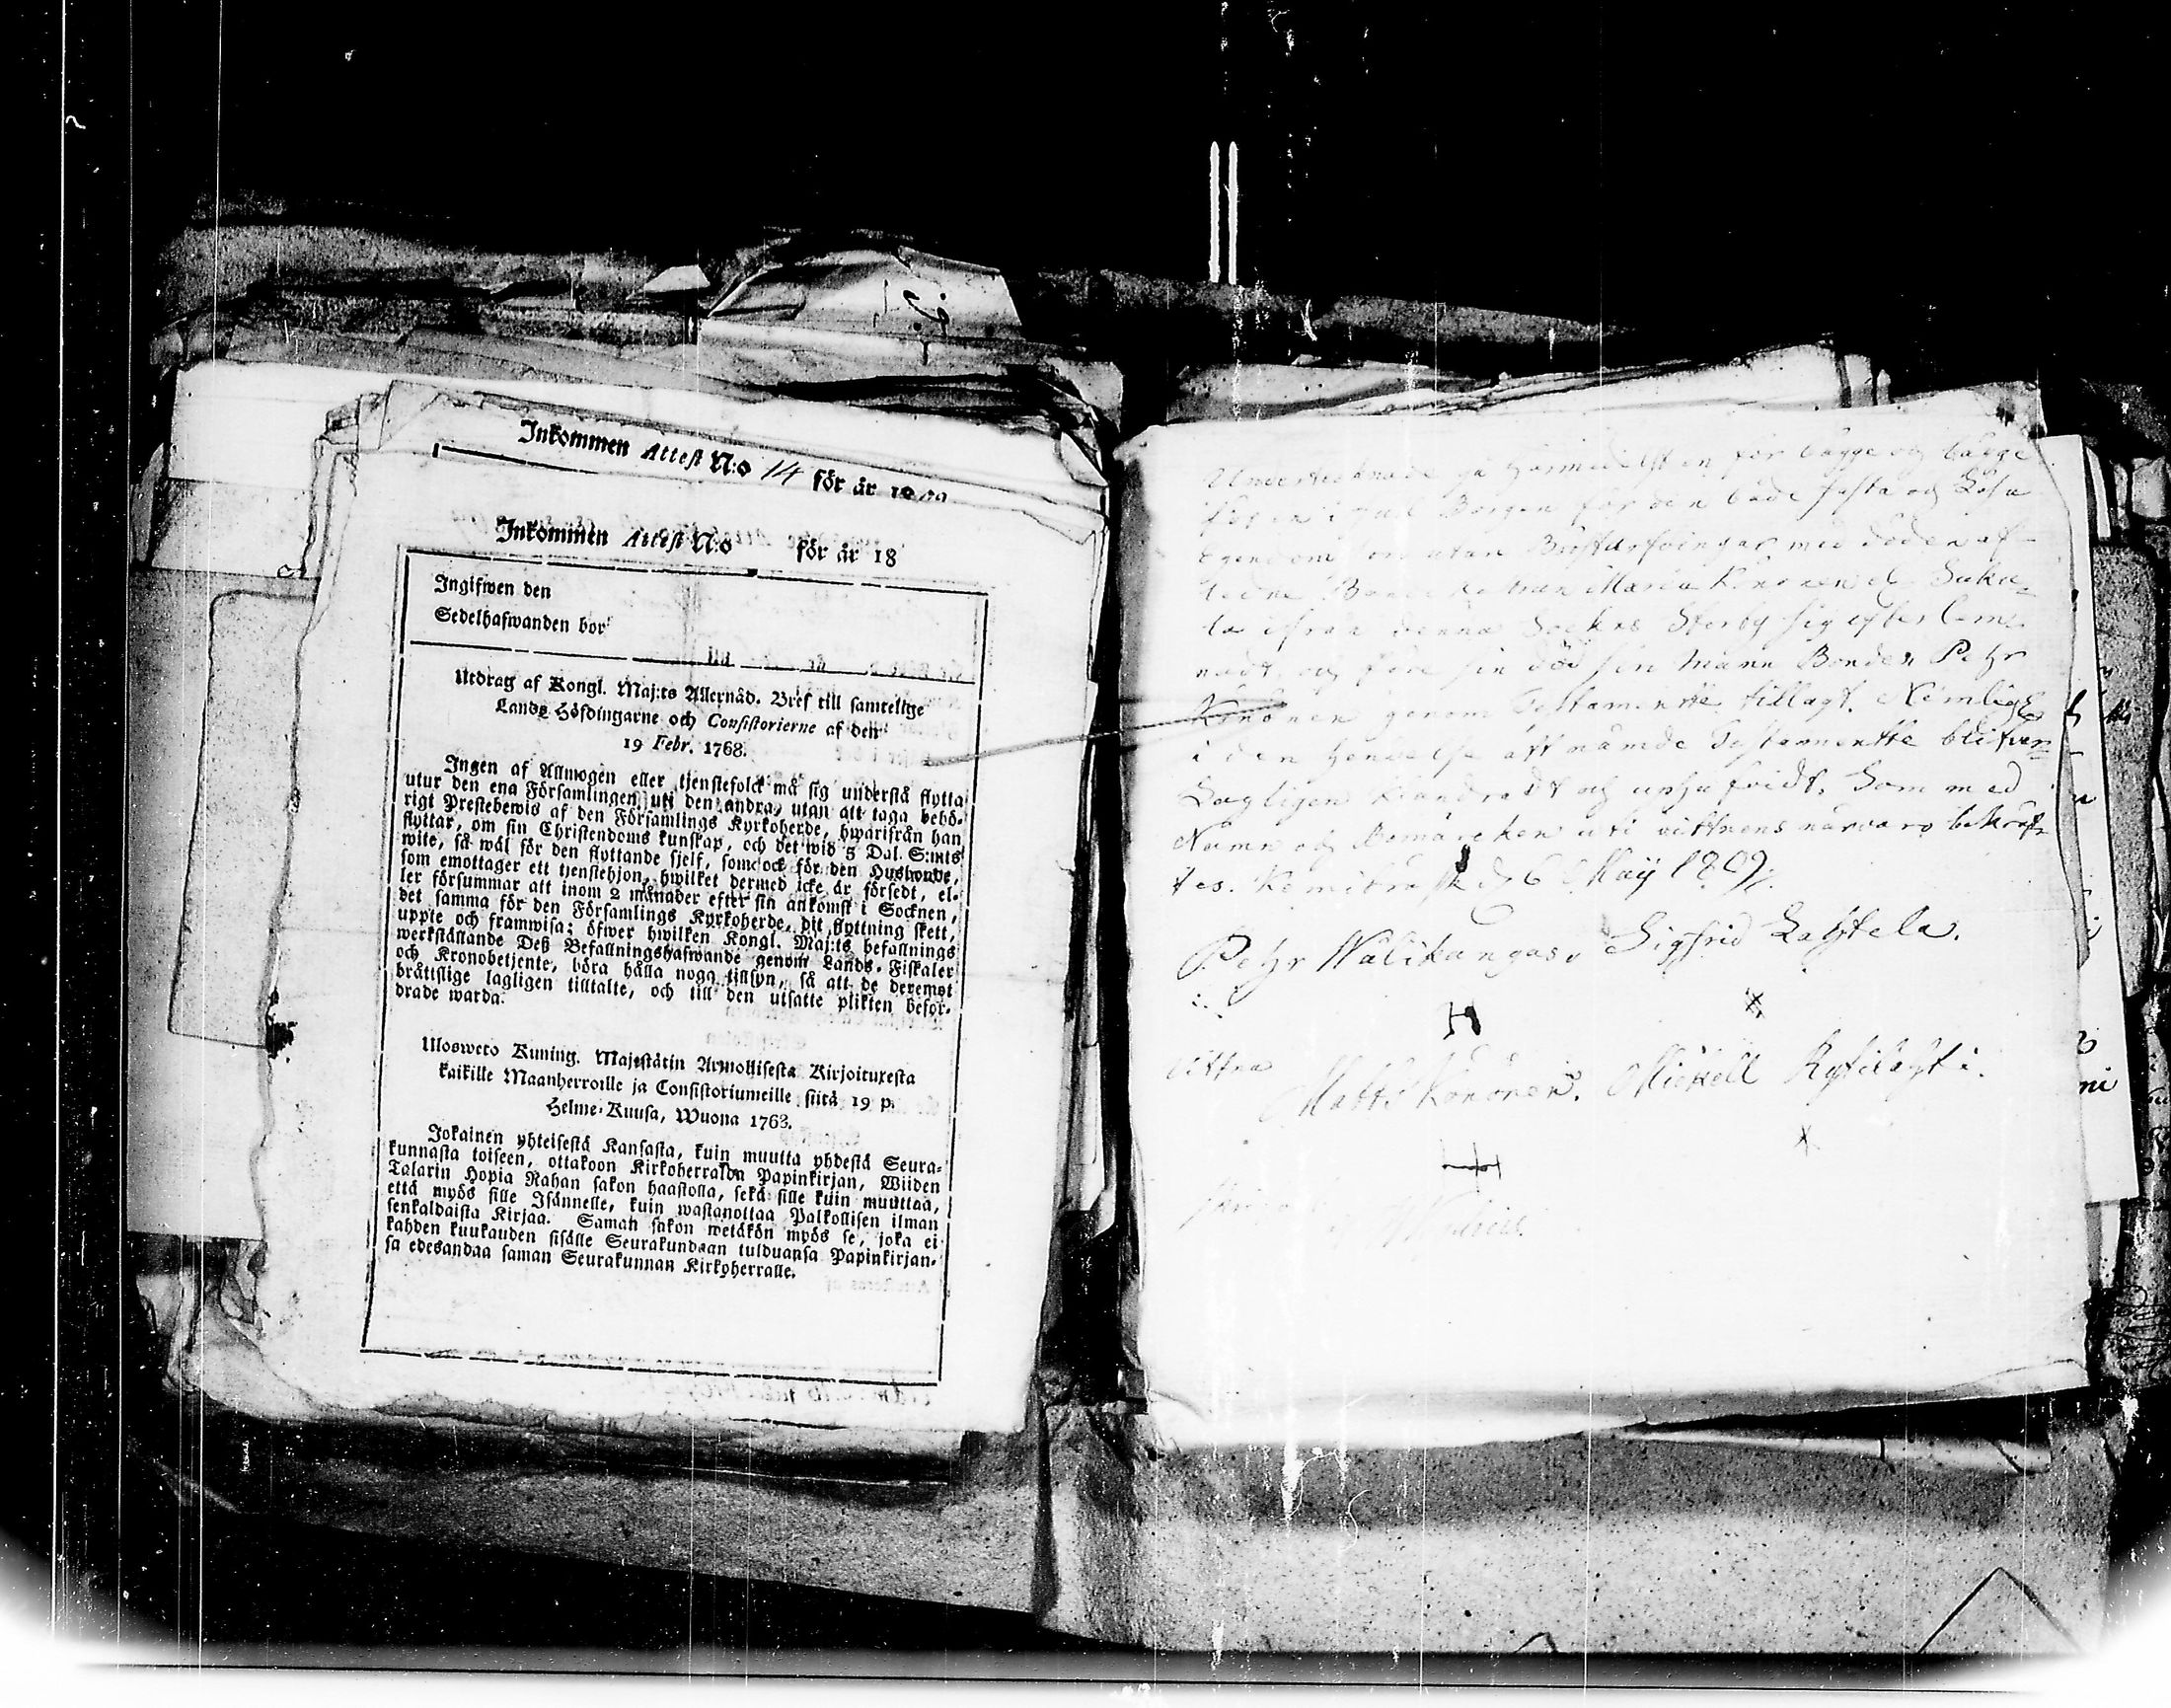 Inkommen Attest N:o 14 för år 18
Inkommen Attest N:o för år 18
Ingifwen den
Sedelhafwanden bor
Utdrag af Kongl. Maj:ts Allernåd. Bref till samtelige
Lands Höfdingarne och Consistorierne af den
19 Febr. 1768.
Ingen af Allmogen eller tjenstefolck må sig understå flytta
utur den ena Församlingen uti den andra, utan att taga behö-
rigt Prestebewis af den Församlings Kyrkoherde, hwarifrån han
flyttar, om sin Christendoms kunskap, och det wid 5 Dal. S:mts
wite, så wäl för den flyttande sjelf, som ock för den Husbonde,
som emottager ett tjenstehjon, hwilket dermed icke är försedt, el-
ler försummar att inom 2 månader efter sin ankomst i Socknen,
det samma för den Församlings Kyrkoherde, dit flyttning skett,
uppte och framwisa; öfwer hwilken Kongl. Maj:ts befallnings
werkställande Deß Befallningshafwande genom Lands-Fiskaler
och Kronobetjente, böra hålla noga tillsyn, så att de deremot
bråttslige lagligen tilltalte, och till den utsatte plikten befor-
drade warda.
Ulosweto Kuning. Majestätin Armollisesta Kirjoituxesta
kaikille Maanherroille ja Consistoriumeille siitä 19 p.
Helme-Kuusa, Wuona 1763.
Jokainen yhteisestä Kansasta, kuin muutta yhdestä Seura-
kunnasta toiseen, ottakoon Kirkoherralda Papinkirjan, Wiiden
Talarin Hopia Rahan sakon haastolla, sekä sille kuin muuttaa,
että myös sille Isännelle, kuin wastanottaa Palkollisen ilman
senkaldaista Kirjaa. Saman sakon wetäkön myös se, joka ei
kahden kuukauden sisälle Seurakundaan tulduansa Papinkirjan-
sa edesandaa saman Seurakunnan Kirkoherralle.
Undertecknade gå härmedelst en för bägge och bägge
för en i Borgen för den både fasta och Lösa
Egendom utan Bröstarfvingar med döden af-
ledne Maria Könönen
denna Sockns Sterby sig efterlem-
nadt, och före sin död sin Mann Bonden Petzr
Könönen genom Testamentte tillagt. Nemligen
i den hendelse att nämde Testamentte blifver
Lagligen klandradt och uphäfvidt. Som med
Namn och Bomärcken uti vittnens närvaro bekräf-
tes. Kemiträsk d 6 Maij 1809.
Petzr Wälikangas, Sigfrid Lachtela.
H
Vittna
Matts Könönen. Mickell Kytilachti.